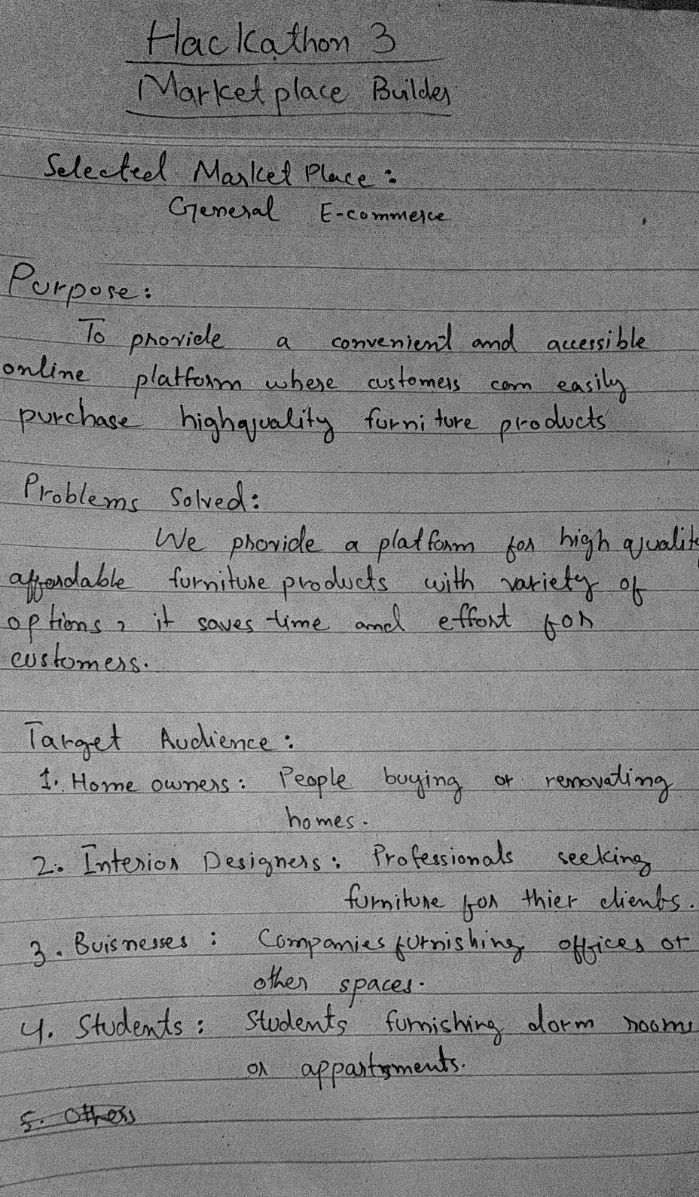 Hackathon 3
Market place Builder
Selected Market Place :
General E-commerce
Purpose :
To provide a convenient and accessible
online platform where customers can easily
purchase highquality furniture products
Problems Solved :
We provide a platform for high quality
affordable furniture products with variety of
options, it saves time and effort for
customers.
Target Audience :
1. Home owners : People buying or renovating
homes.
2. Interior Designers : Professionals seeking
furniture for thier clients.
3. Buisnesses : Companies furnishing offices or
other spaces.
4. Students : Students furnishing dorm rooms
or appartments.
5. Others